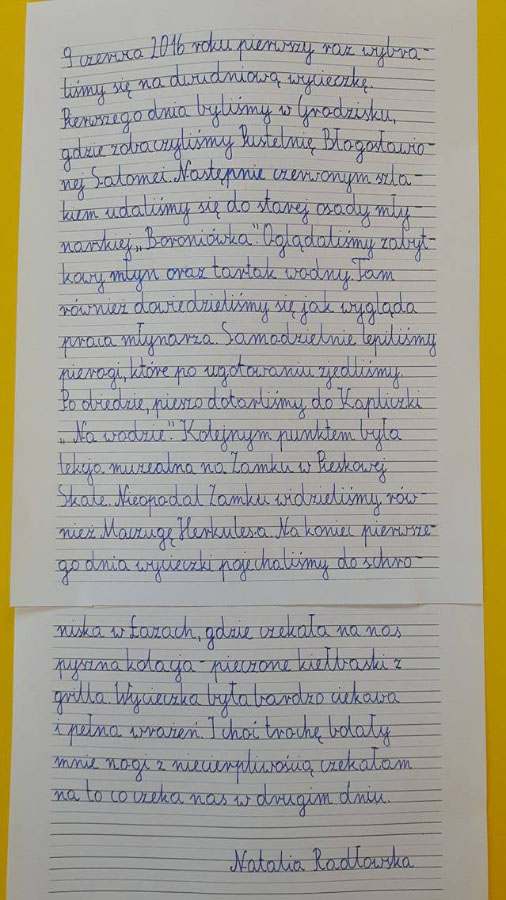 9 czerwca 2016 roku pierwszy raz wybra-
liśmy się na dwudniową wycieczkę.
Pierwszego dnia byliśmy w Grodzisku,
gdzie zobaczyliśmy Pustelnię Błogosławio-
nej Salomei. Następnie czerwonym szla-
kiem udaliśmy się do starej osady mły-
narskiej „Boroniówka". Oglądaliśmy zabyt-
kowy młyn oraz tartak wodny. Tam
również dowiedzieliśmy się jak wygląda
praca młynarza. Samodzielnie lepiliśmy
pierogi, które po ugotowaniu zjedliśmy.
Po obiedzie, pieszo dotarliśmy do Kapliczki
„Na wodzie". Kolejnym punktem była
lekcja muzealna na Zamku w Pieskowej
Skale. Nieopodal Zamku widzieliśmy rów-
nież Maczugę Herkulesa. Na koniec pierwsze-
go dnia wycieczki pojechaliśmy do schro-
niska w Łazach, gdzie czekała na nas
pyszna kolacja - pieczone kiełbaski z
grilla. Wycieczka była bardzo ciekawa
i pełna wrażeń. I choć trochę bolały
mnie nogi z niecierpliwością czekałam
na to co czeka nas w drugim dniu.
Natalia Radłowska